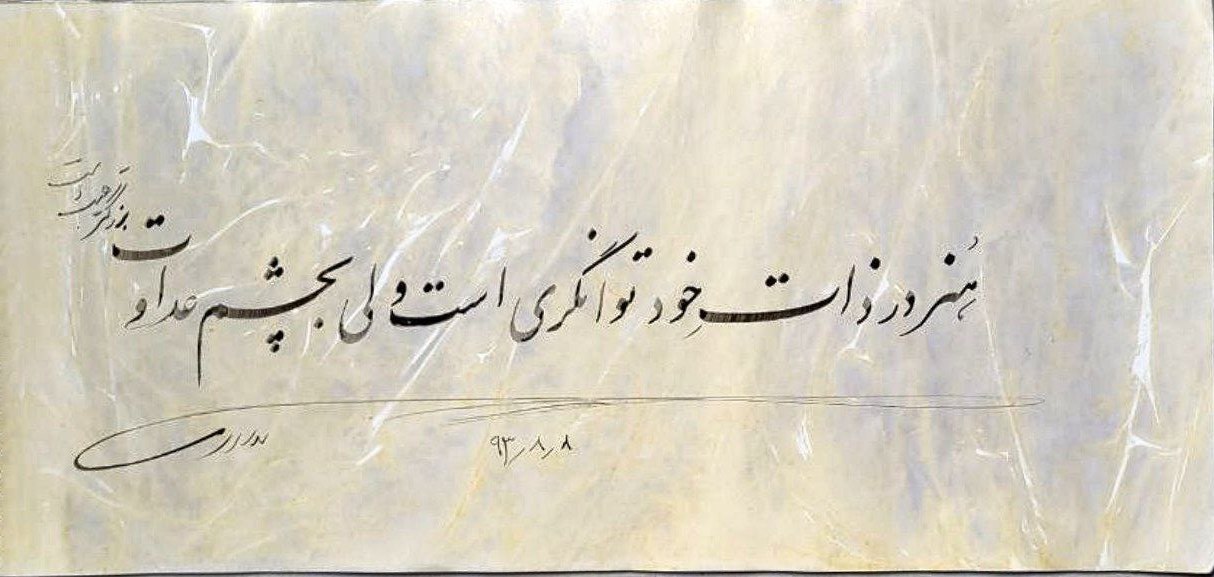 هُنر در ذات خود توانگری است ولی بچشم عداوت
بزرگتر عیب است
۹۳٫۸٫۸